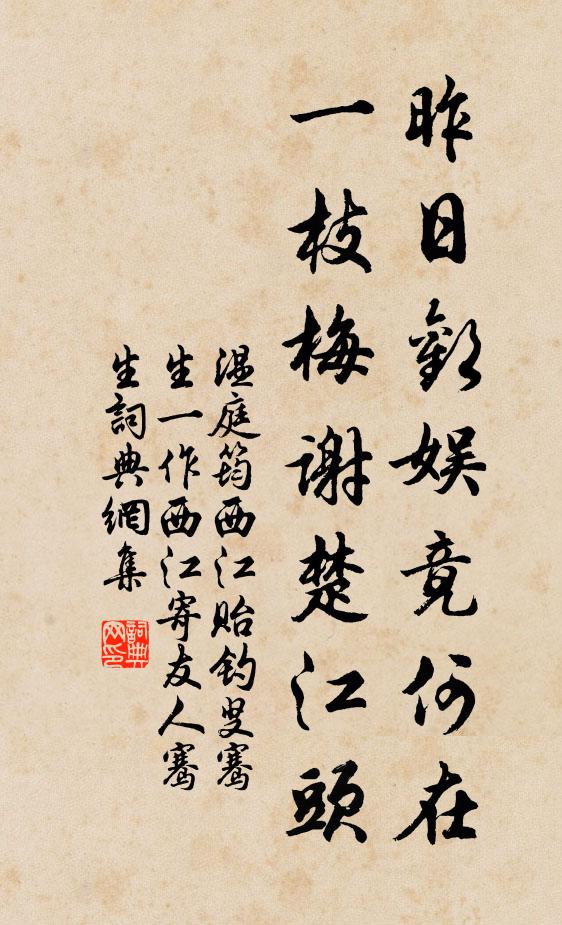 昨日歡娛竟何在
一枝梅謝楚江頭
溫庭筠西江貽釣叟騫
生一作西江寄友人騫
生詞典網集
詞典
网印